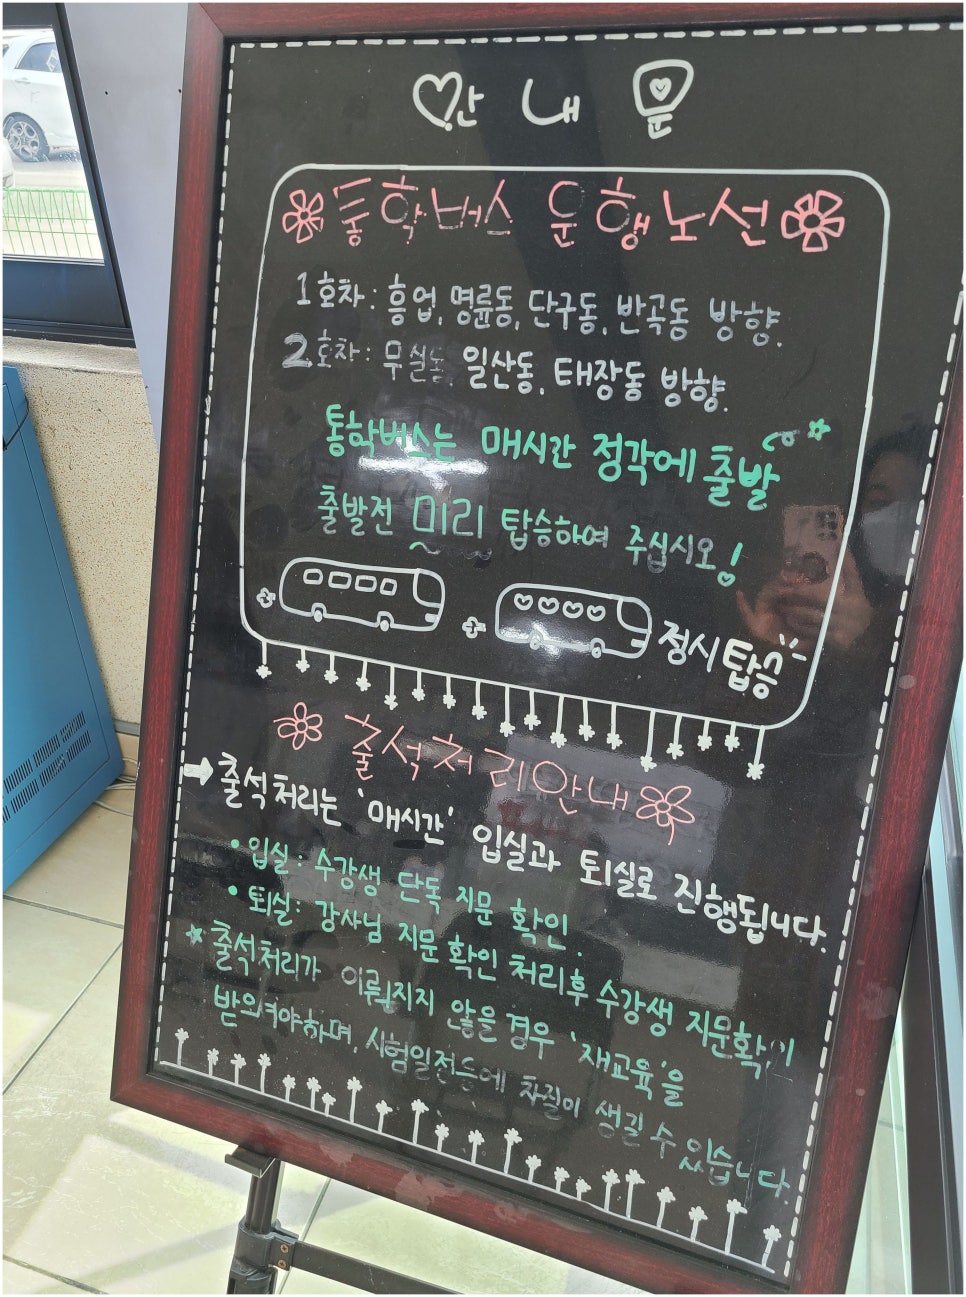 안내문
통학버스 운행노선
1호차: 흥업, 명륜동, 단구동, 반곡동 방향.
2호차: 무실동, 일산동, 태장동 방향.
통학버스는 매시간 정각에 출발
출발전 미리 탑승하여 주십시오!
정시탑승
출석처리안내
출석처리는 '매시간' 입실과 퇴실로 진행됩니다.
• 입실: 수강생 단독 지문 확인.
• 퇴실: 강사님 지문 확인 처리후 수강생 지문확인
출석처리가 이뤄지지 않을 경우 '재교육'을
받으셔야하며, 시험일전등에 차질이 생길 수 있습니다.